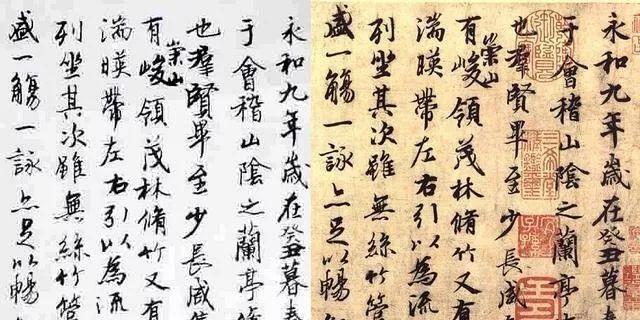 永和九年歲在癸丑暮春
于會稽山陰之蘭亭脩
也羣賢畢至少長咸集
有崇山峻領茂林脩竹又有
湍暎帶左右引以為流
列坐其次雖無絲竹管
盛一觴一詠亦足以暢
永和九年歲在癸丑暮
于會稽山陰之蘭亭
也羣賢畢至少長咸
有崇山峻領茂林脩竹又有
湍暎帶左右引以為流
列坐其次雖無絲竹管
盛一觴一詠亦足以暢